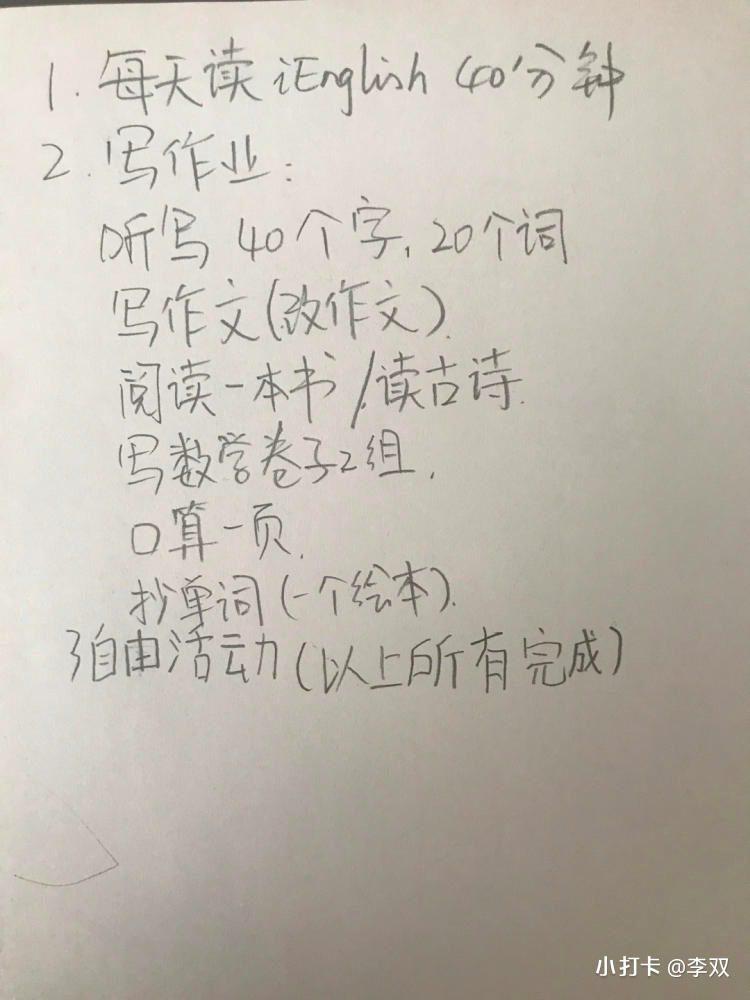 1. 每天读 iEnglish 40分钟
2. 写作业:
听写 40个字, 20个词
写作文(改作文).
阅读一本书 / 读古诗.
写数学卷子2组.
口算一页.
抄单词 (一个绘本).
3 自由活动 (以上所有完成)
小打卡 @李双